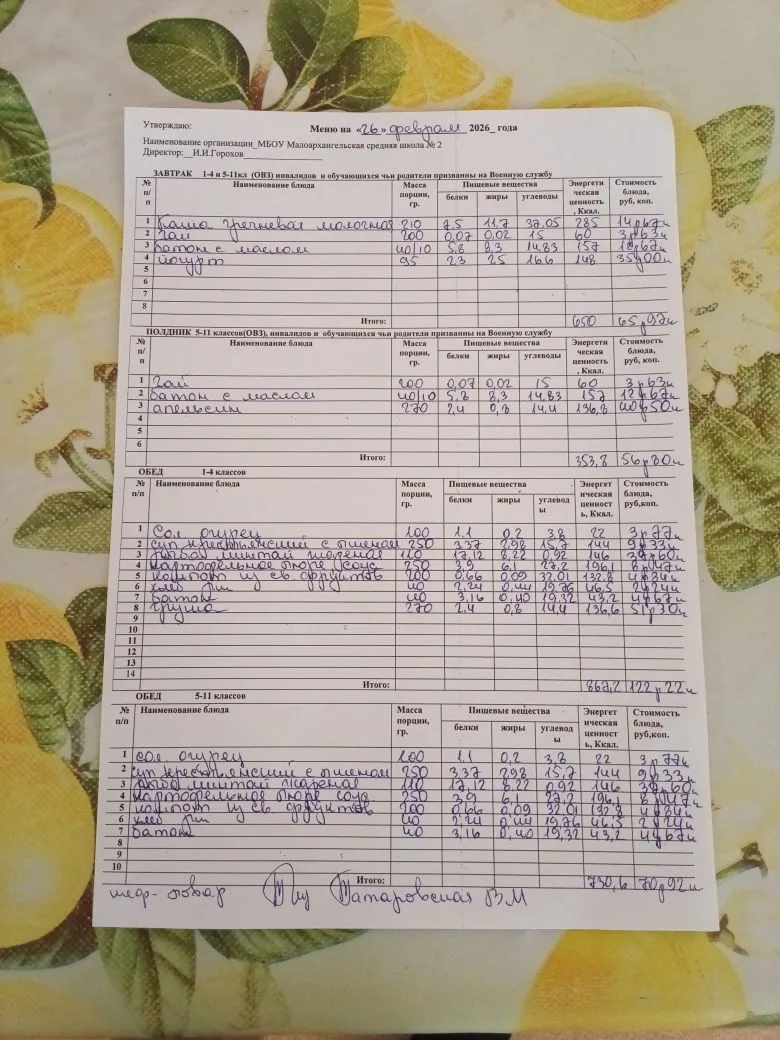 Утверждаю:
Меню на «26» февраля 2026_ года
Наименование организации_МБОУ Малоархангельская средняя школа № 2
Директор:__И.И.Горохов
ЗАВТРАК 1-4 и 5-11кл (ОВЗ) инвалидов и обучающихся чьи родители призванны на Военную службу
№ п/п Наименование блюда Масса порции, гр. Пищевые вещества белки жиры углеводы Энергетическая ценность, Ккал. Стоимость блюда, руб, коп.
1 Каша гречневая молочная 210 7,5 11,7 37,05 285 14р67к
2 Чай 200 0,07 0,02 15 60 3р63к
3 батон с маслом 40/10 5,8 8,3 14,83 157 12р67к
4 йогурт 95 23 25 166 148 35р00к
5
6
7
8
Итого: 650 65р97к
ПОЛДНИК 5-11 классов(ОВЗ), инвалидов и обучающихся чьи родители призванны на Военную службу
№ п/п Наименование блюда Масса порции, гр. Пищевые вещества белки жиры углеводы Энергетическая ценность, Ккал. Стоимость блюда, руб, коп.
1 Чай 200 0,07 0,02 15 60 3р63к
2 батон с маслом 40/10 5,8 8,3 14,83 157 12р67к
3 апельсин 270 2,4 0,8 14,4 136,8 40р50к
4
5
6
Итого: 353,8 56р80к
ОБЕД 1-4 классов
№ п/п Наименование блюда Масса порции, гр. Пищевые вещества белки жиры углеводы Энергетическая ценность, Ккал. Стоимость блюда, руб,коп.
1 Сол. огурец 100 1.1 0,2 3,8 22 3р77к
2 суп крестьянский с пшеном 250 3,37 2,98 15,7 144 9р33к
3 рыба минтай жареная 110 17,12 8,22 0,92 146 60к
4 картофельное пюре соус 250 3,9 6,1 27,2 196,1 8р47к
5 компот из св. фруктов 200 0,66 0,09 32,01 132,8 4р34к
6 хлеб рж 40 2,24 0,44 19,76 46,5 2р24к
7 батон 40 3,16 0,40 19,32 43,2 4р67к
8 груша 270 2,4 0,8 14,4 136,6 51р30к
9
10
11
12
13
14
Итого: 867,2 122р22к
ОБЕД 5-11 классов
№ п/п Наименование блюда Масса порции, гр. Пищевые вещества белки жиры углеводы Энергетическая ценность, Ккал. Стоимость блюда, руб,коп.
1 сол. огурец 100 1.1 0,2 3,8 22 3р77к
2 суп крестьянский с пшеном 250 3,37 2,98 15,7 144 9р33к
3 рыба минтай жареная 110 17,12 8,22 0,92 146 60к
4 картофельное пюре соус 250 3,9 6,1 27,2 196,1 8р47к
5 компот из св. фруктов 200 0,66 0,09 32,01 4р34к
6 хлеб рж 40 2,24 0,44 19,76 46,5 2р24к
7 батон 40 3,16 0,40 19,32 43,2 4р67к
8
9
10
Итого: 730,6 70р92к
шеф-повар Татаровская В М